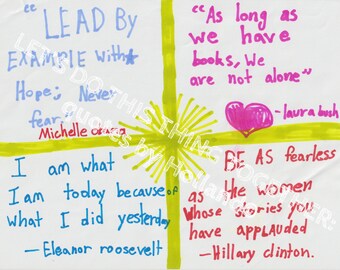 "LEAD By
EXAMPLE With
Hope; Never
fear"
Michelle obama
"As long as
we have
books, We
are not alone"
-laura bush
I am what
I am today because of
what I did yesterday
-Eleanor roosevelt
BE AS fearless
as the women
whose stories you
have applauded
-Hillary clinton.
LET'S DO THIS THING TOGETHER:
Quotes by Hollan